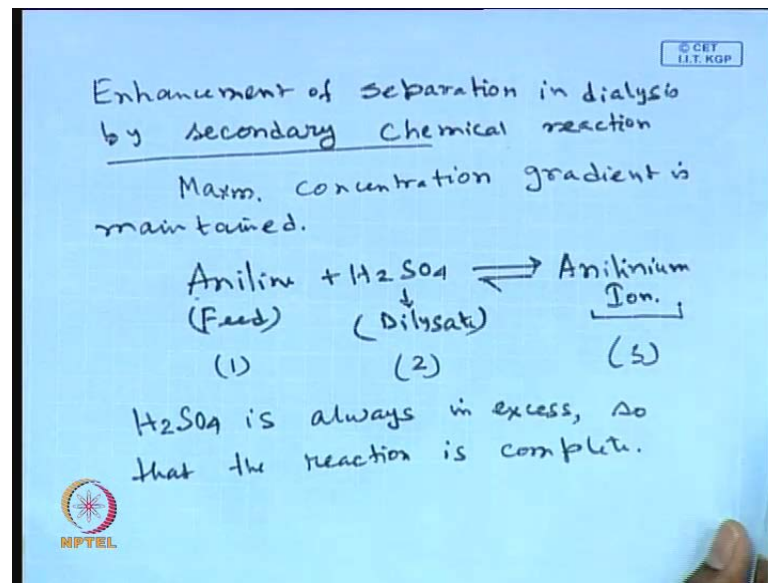 © CET
I.I.T. KGP
Enhancement of separation in dialysis
by secondary chemical reaction
Maxm. concentration gradient is
maintained.
Aniline + H2SO4 ⇌ Anilinium
(Feed) (Dilysate) Ion.
(1) (2) (3)
H2SO4 is always in excess, so
that the reaction is complete.
NPTEL